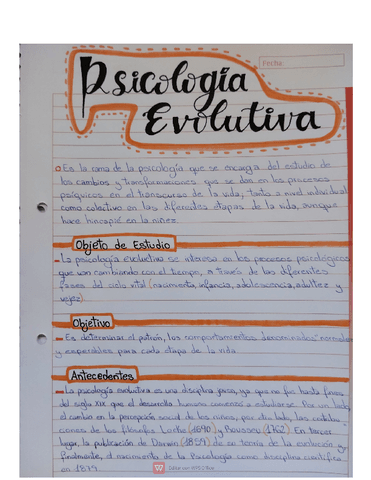 Fecha:
Psicología
Evolutiva
Es la rama de la psicología que se encarga del estudio de
los cambios y transformaciones que se dan en los procesos
psíquicos en el transcurso de la vida, tanto a nivel individual
como colectivo en las diferentes etapas de la vida, aunque
hace hincapié en la niñez.
Objeto de Estudio
La psicología evolutiva se interesa en los procesos psicológicos
que van cambiando con el tiempo, a través de las diferentes
fases del ciclo vital (nacimiento, infancia, adolescencia, adultez y
vejez).
Objetivo
Es determinar el patrón, los comportamientos denominados "normales
y esperables para cada etapa de la vida
Antecedentes
La psicología evolutiva es una disciplina joven, ya que no fue hasta fines
del siglo XIX que el desarrollo humano comenzó a estudiarse. Por un lado,
el cambio en la percepción social de los niños, por otro lado, las
ciones de los filósofos Locke (1690) y Rousseu (1762). En tercer
lugar, la publicación de Darwin (1859) de su teoría de la evolución y
finalmente, el nacimiento de la Psicología como disciplina científica
en 1879